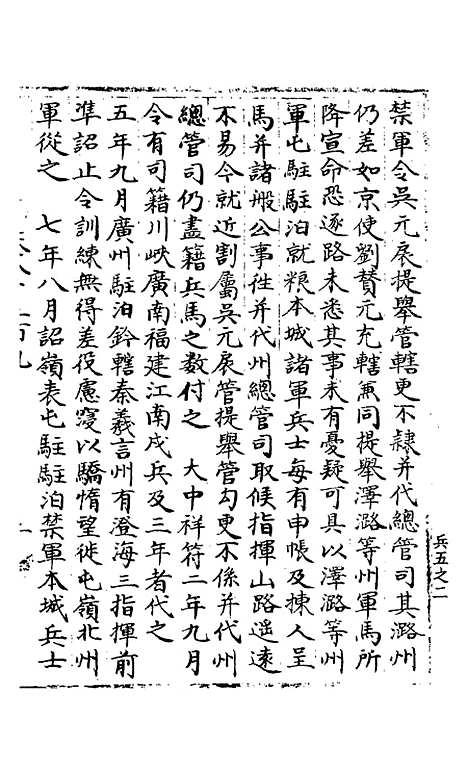 禁軍令吳元扆提舉管轄更不隸并代總管司其潞州
仍差如京使劉贊元充轄兼同提舉澤潞等州軍馬所
降宣命恐逐路未悉其事未有憂疑可具以澤潞等州
軍屯駐駐泊就粮本城諸軍兵士每有申帳及揀人呈
馬并諸般公事徃并代州總管司取候指揮山路遥遠
不易今就近割屬吳元扆管提舉管勾更不係并代州
總管司仍盡籍兵馬之数付之 大中祥符二年九月
令有司籍川峽廣南福建江南戍兵及三年者代之
五年九月廣州駐泊鈐轄秦羲言州有澄海三指揮前
準詔止令訓練無得差役慮寖以驕惰望徙屯嶺北州
軍從之 七年八月詔嶺表屯駐駐泊禁軍本城兵士
兵五之二
一